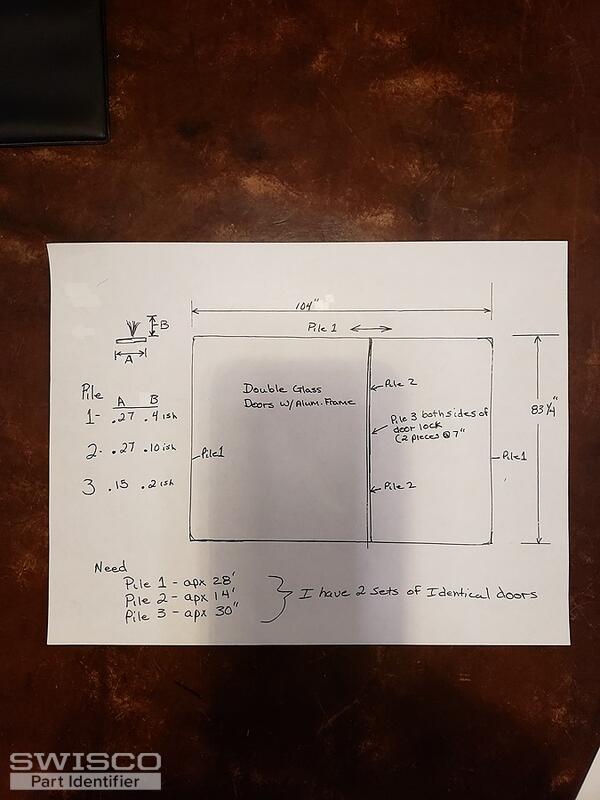 104"
Pile 1
B
A
Pile A B
1- .27 .4 ish
2- .27 .10 ish
3 .15 .2 ish
Double Glass
Doors W/Alum. Frame
Pile 2
Pile 3 both sides of
door lock
(2 pieces @ 7"
Pile 2
Pile1
Pile1
83 1/4"
Need
Pile 1 - apx 28'
Pile 2 - apx 14'
Pile 3 - apx 30"
I have 2 sets of Identical doors
SWISCO
Part Identifier